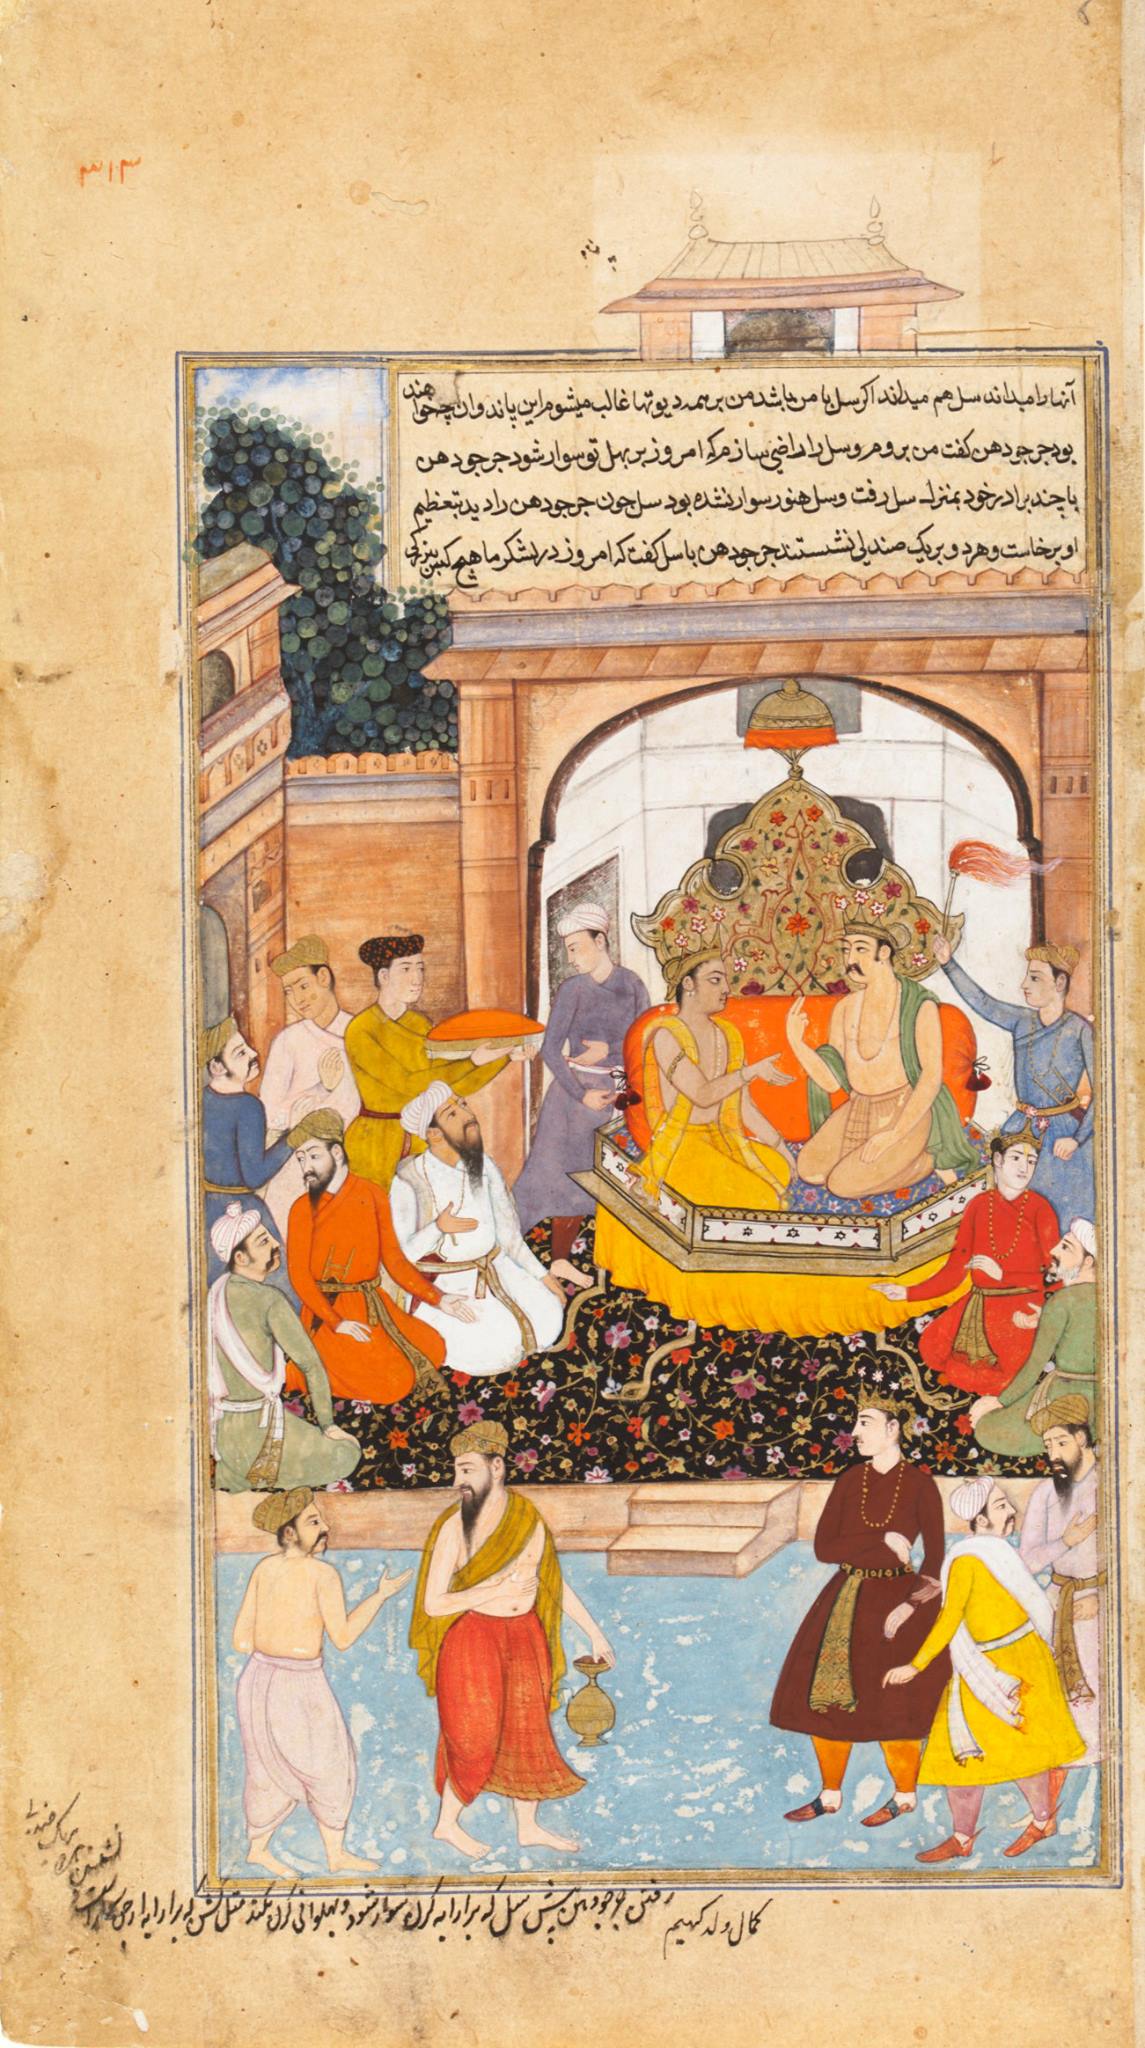 ۳۱۳
آنها را میداند سل هم میداند اکر سل با من باشد من بر همه دیوتها غالب میشوم این پاندوان چه خواهند
بود جرجودهن کفت من بروم و سل را راضی سازم که امروز بر بهل تو سوار شود جرجودهن
با چند برادر خود بمنزل سل رفت و سل هنوز سوار نشده بود سل چون جرجودهن را دید بتعظیم
او برخاست و هر دو بر یک صندلی نشستند جرجودهن با سل کفت که امروز در لشکر ما هیچ کس بزرکی
رفتن جرجودهن پیش سل که بر ارابه کرن سوار شود و بهلوانی کرن بکند مثل کشن که بر ارابه ارجن سوار است
کمال ولد کهیم